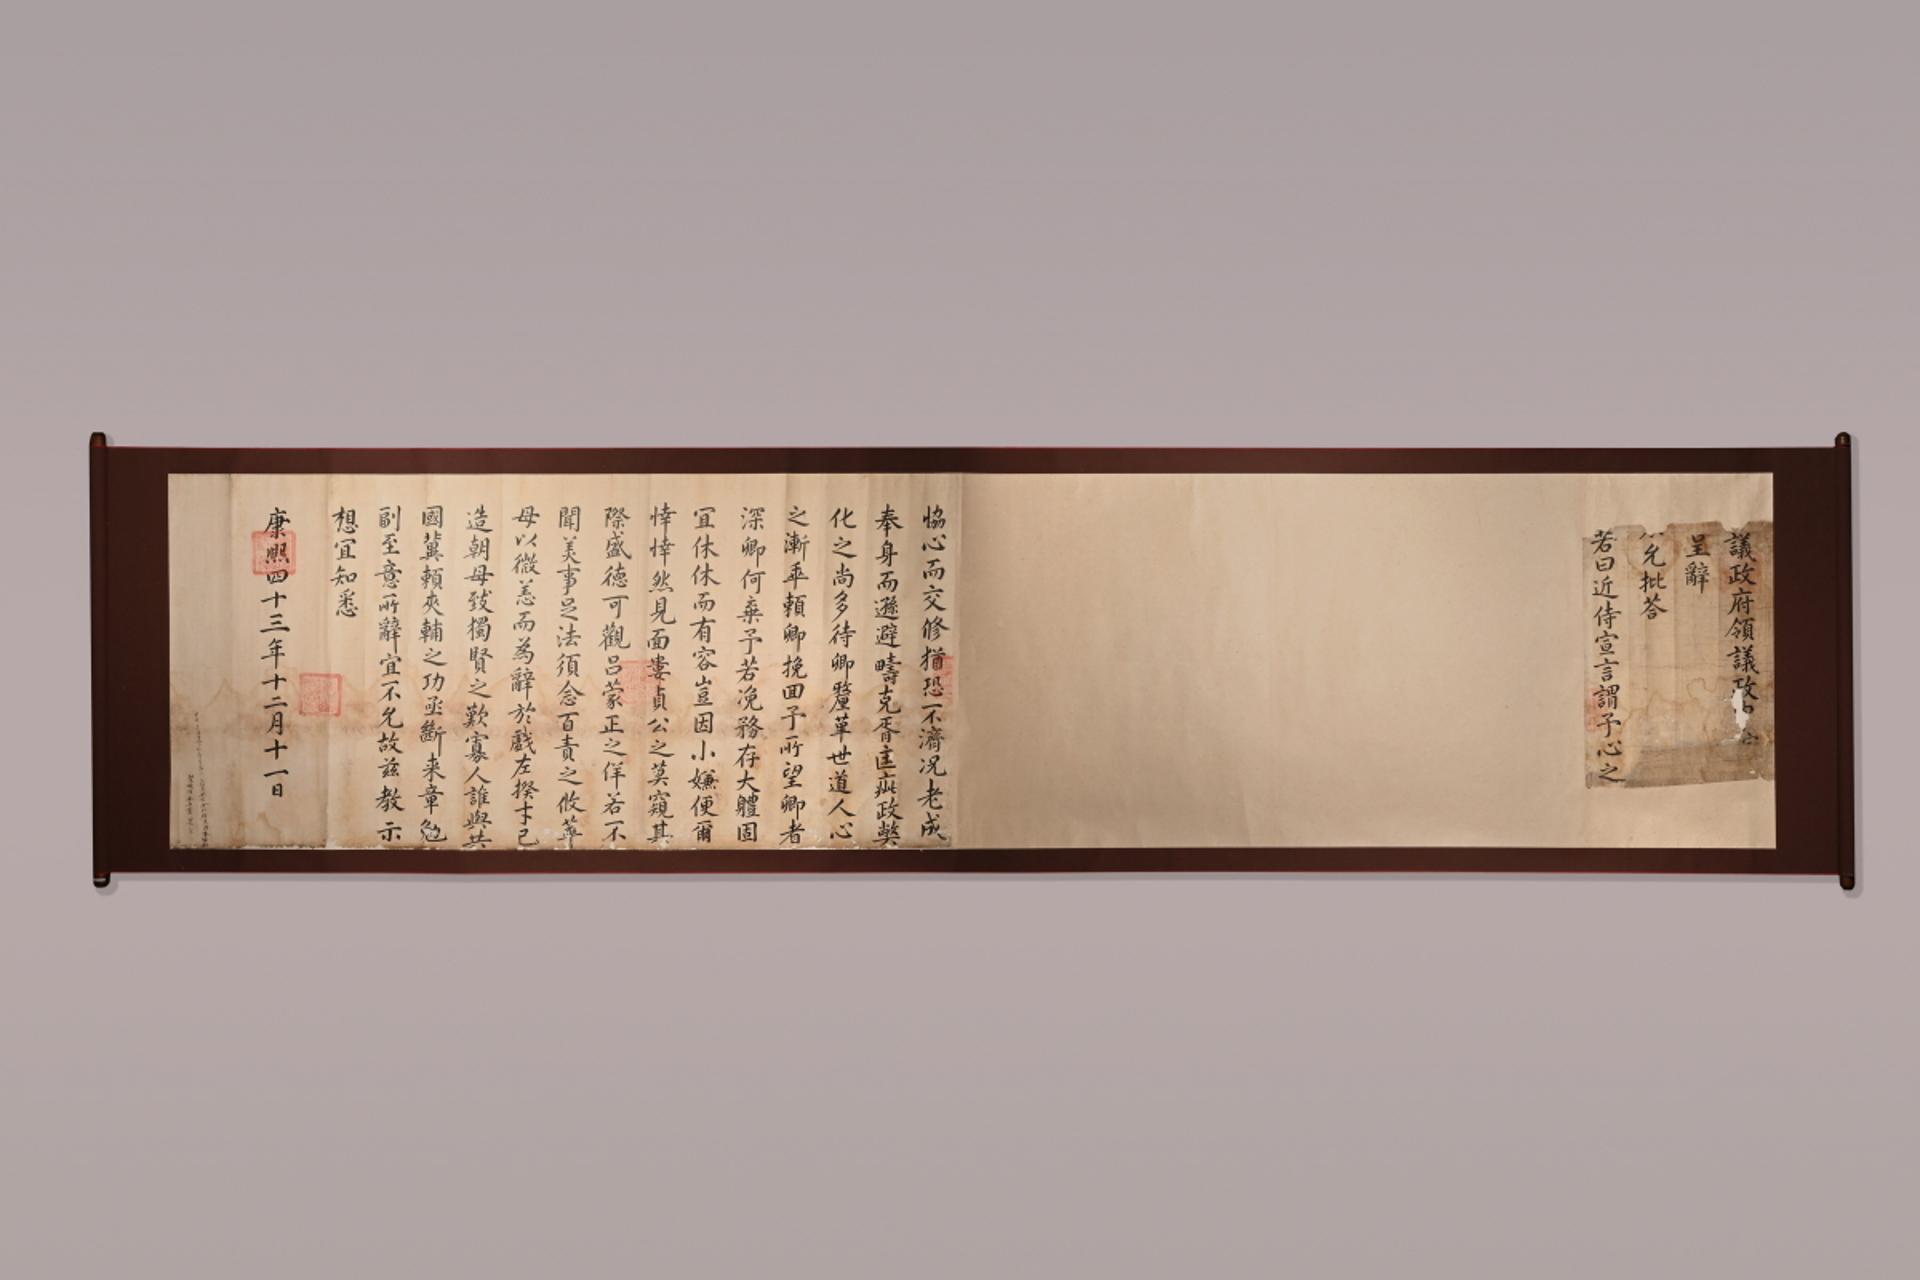 議政府領議政
呈辭
允批荅
若曰近侍宣言謂予心之
恊心而交修猶恐不濟况老成
奉身而遜避疇克胥匡疵政獘
化之尚多待卿釐革世道人心
之漸乖頼卿挽回予所望卿者
深卿何棄予若浼務存大體固
宜休休而有容豈因小嫌便爾
悻悻然見面婁貞公之莫窺其
際盛德可觀呂蒙正之佯若不
聞美事足法須念百責之攸萃
毋以微恙而為辭於戱左揆才已
造朝毋致獨賢之歎寡人誰與共
國冀頼夾輔之功亟斷来章勉
副至意所辭宜不允故兹教示
想宜知悉
康熙四十三年十二月十一日